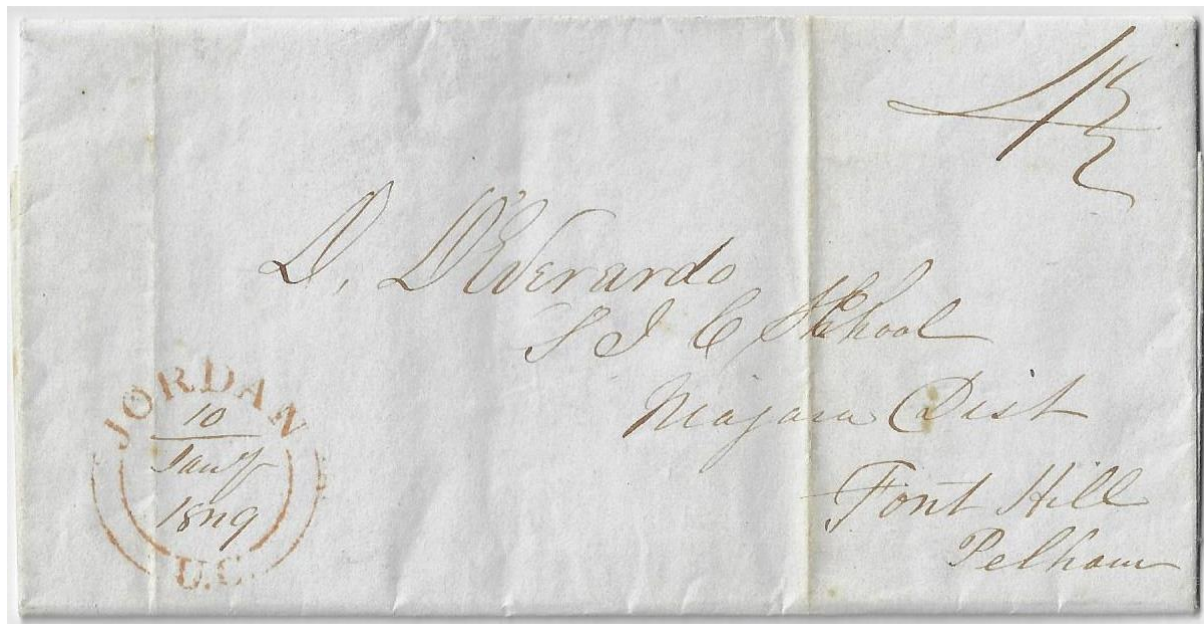 4½
D. D'Everardo
S I C School
Niagara Dist
Font Hill
Pelham
JORDAN
10
Jany
1849
U.C.